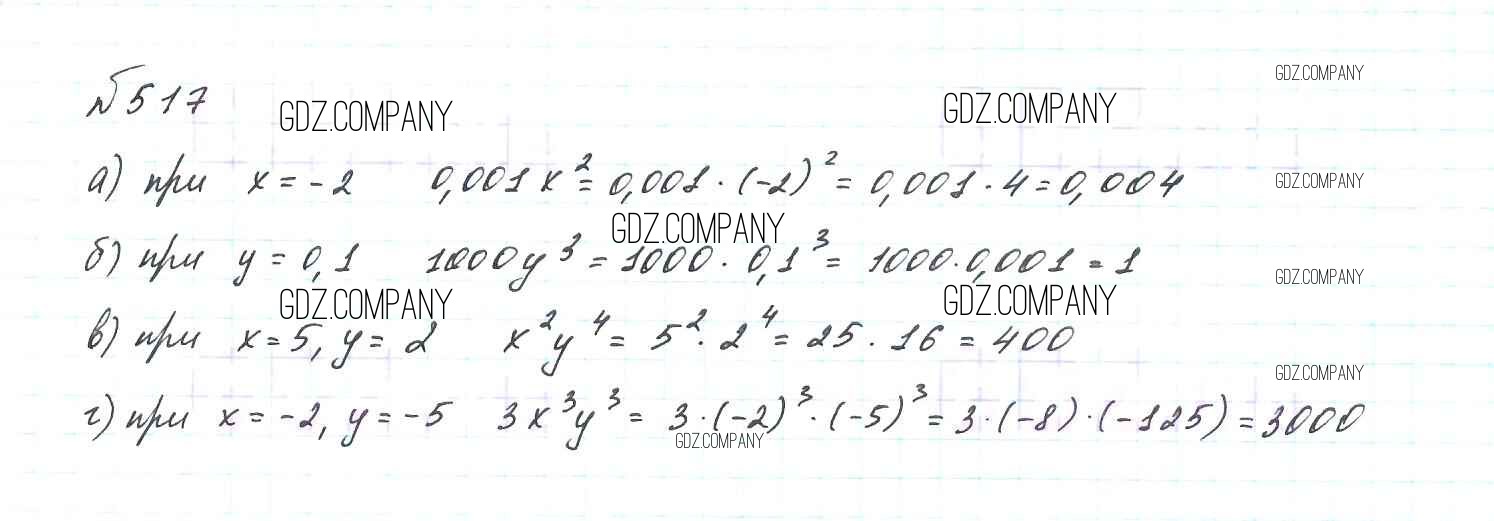 GDZ.COMPANY
№517
GDZ.COMPANY GDZ.COMPANY
а) при x = -2 0,001x² = 0,001 · (-2)² = 0,001 · 4 = 0,004
GDZ.COMPANY
GDZ.COMPANY
б) при y = 0,1 1000y³ = 1000 · 0,1³ = 1000 · 0,001 = 1
GDZ.COMPANY
GDZ.COMPANY GDZ.COMPANY
в) при x = 5, y = 2 x²y⁴ = 5² · 2⁴ = 25 · 16 = 400
GDZ.COMPANY
г) при x = -2, y = -5 3x³y³ = 3 · (-2)³ · (-5)³ = 3 · (-8) · (-125) = 3000
GDZ.COMPANY